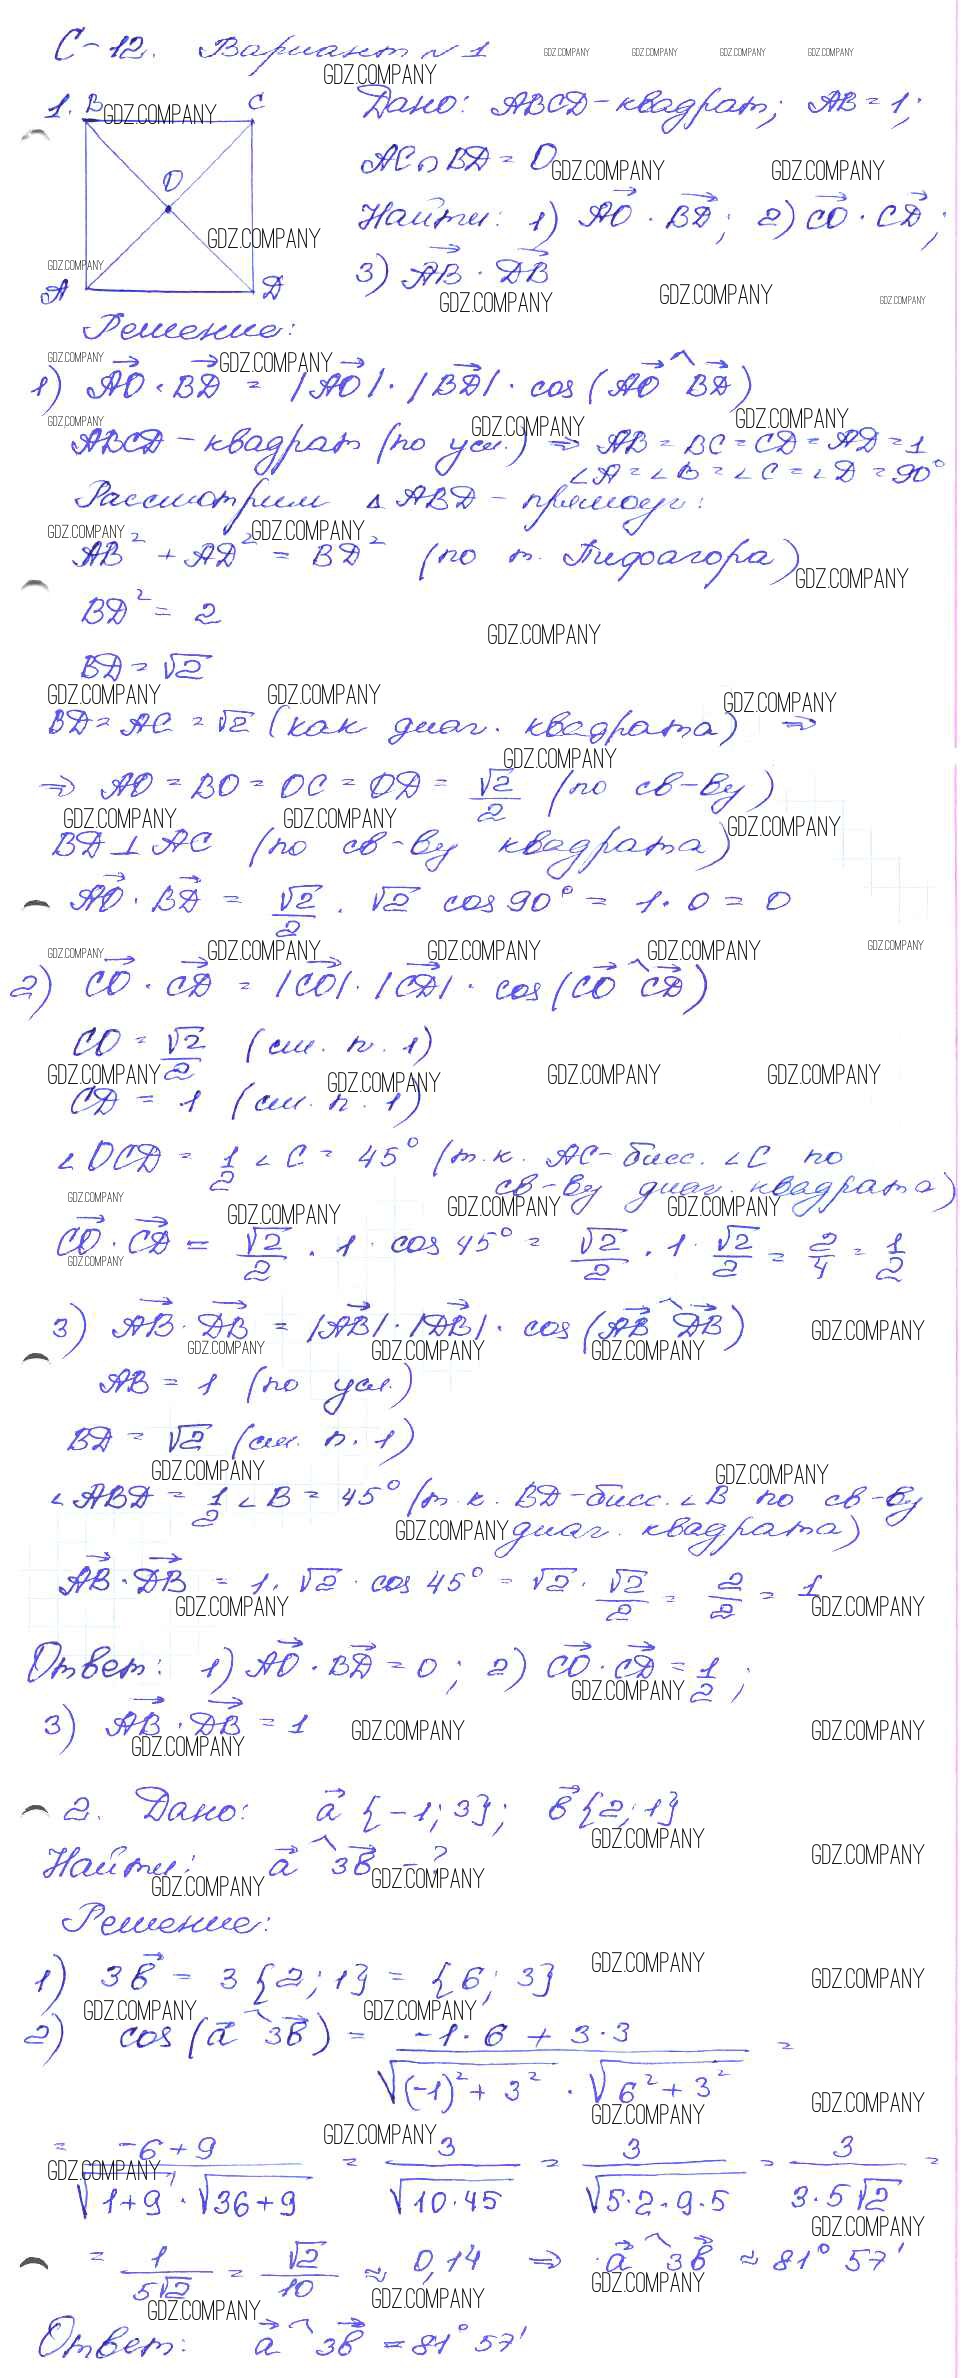 С-12. Вариант №1
1. B C O A D
Дано: ABCD - квадрат; AB = 1;
AC ∩ BD = O
Найти: 1) AO⃗ · BD⃗; 2) CO⃗ · CD⃗;
3) AB⃗ · DB⃗
Решение:
1) AO⃗ · BD⃗ = |AO⃗| · |BD⃗| · cos(AO⃗ ^ BD⃗)
ABCD - квадрат (по усл.) ⇒ AB = BC = CD = AD = 1
∠A = ∠B = ∠C = ∠D = 90°
Рассмотрим △ABD - прямоуг:
AB² + AD² = BD² (по т. Пифагора)
BD² = 2
BD = √2
BD = AC = √2 (как диаг. квадрата) ⇒
⇒ AO = BO = OC = OD = √2/2 (по св-ву)
BD ⊥ AC (по св-ву квадрата)
AO⃗ · BD⃗ = √2/2 · √2 cos 90° = 1 · 0 = 0
2) CO⃗ · CD⃗ = |CO⃗| · |CD⃗| · cos(CO⃗ ^ CD⃗)
CO = √2/2 (см. п. 1)
CD = 1 (см. п. 1)
∠OCD = 1/2 ∠C = 45° (т.к. AC - бисс. ∠C по
св-ву диаг. квадрата)
CO⃗ · CD⃗ = √2/2 · 1 · cos 45° = √2/2 · 1 · √2/2 = 2/4 = 1/2
3) AB⃗ · DB⃗ = |AB⃗| · |DB⃗| · cos(AB⃗ ^ DB⃗)
AB = 1 (по усл.)
BD = √2 (см. п. 1)
∠ABD = 1/2 ∠B = 45° (т.к. BD - бисс. ∠B по св-ву
диаг. квадрата)
AB⃗ · DB⃗ = 1 · √2 · cos 45° = √2 · √2/2 = 2/2 = 1
Ответ: 1) AO⃗ · BD⃗ = 0; 2) CO⃗ · CD⃗ = 1/2;
3) AB⃗ · DB⃗ = 1
2. Дано: a⃗ {-1; 3}; b⃗ {2; 1}
Найти: a⃗ ^ 3b⃗ - ?
Решение:
1) 3b⃗ = 3{2; 1} = {6; 3}
2) cos(a⃗ ^ 3b⃗) = (-1 · 6 + 3 · 3)/(√((-1)² + 3²) · √(6² + 3²)) =
= (-6 + 9)/(√(1+9) · √(36+9)) = 3/√(10·45) = 3/√(5·2·9·5) = 3/(3·5√2) =
= 1/(5√2) = √2/10 ≈ 0,14 ⇒ a⃗ ^ 3b⃗ ≈ 81° 57'
Ответ: a⃗ ^ 3b⃗ = 81° 57'
GDZ.COMPANY